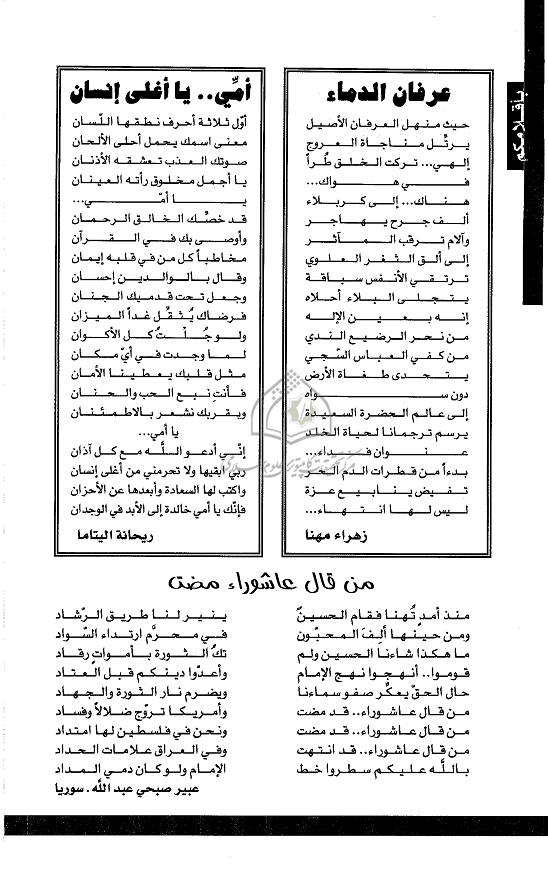 بأقلامكم
عرفان الدماء
حيث منهل العرفان الأصيل
يرتّل مناجاة العروج
إلهي... تركت الخلق طُراً
في هواك...
هناك... إلى كربلاء
ألف جرح يهاجر
وآلام ترقب المآثر
إلى ألق الثغر العلوي
ترتقي الأنفس سباقة
يتجلى البلاء أحلاه
إنه بعين الإله
من نحر الرضيع الندي
من كفي العباس السّجي
يتحدى طغاة الأرض
دون سواه
إلى عالم الحضرة السعيدة
يرسم ترجمانا لحياة الخلد
عنوان فداء...
بدءاً من قطرات الدم الحر
تفيض ينابيع عزة
ليس لها انتهاء...
زهراء مهنا
أمّي.. يا أغلى إنسان
أوّل ثلاثة أحرف نطقها اللّسان
معنى اسمك يحمل أحلى الألحان
صوتك العذب تعشقه الأذنان
يا أجمل مخلوق رأته العينان
يا أمّي...
قد خصّك الخالق الرحمان
وأوصى بك في القرآن
مخاطباً كل من في قلبه إيمان
وقال بالوالدين إحسان
وجعل تحت قدميك الجنان
فرضاك يُثقل غداً الميزان
ولو جُلْتُ كل الأكوان
لما وجدت في أيّ مكان
مثل قلبك يعطينا الأمان
فأنتِ نبع الحب والحنان
وبقربك نشعر بالاطمئنان
يا أمي...
إنّي أدعو اللّه مع كل آذان
ربي أبقيها ولا تحرمني من أغلى إنسان
واكتب لها السعادة وأبعدها عن الأحزان
فإنّك يا أمي خالدة إلى الأبد في الوجدان
ريحانة اليتاما
من قال عاشوراء مضت
منذ أمدٍ تُهنا فقام الحسينُ ينير لنا طريق الرّشاد
ومن حينها ألِفَ المحبّون في محرّم ارتداء السّواد
ما هكذا شاءنا الحسين ولم تكُ الثورة بأمواتٍ رقاد
قوموا.. أنهجوا نهج الإمام وأعدّوا دينكم قبل العتاد
حال الحقّ يعكّر صفو سماءنا ويضرم نار الثورة والجهاد
من قال عاشوراء.. قد مضت وأمريكا تروّج ضلالاً وفساد
من قال عاشوراء.. قد مضت ونحن في فلسطين لها امتداد
من قال عاشوراء.. قد انتهت وفي العراق علامات الحداد
باللّه عليكم سطروا خط الإمام ولو كان دمي المداد
عبير صبحي عبد اللّه. سوريا